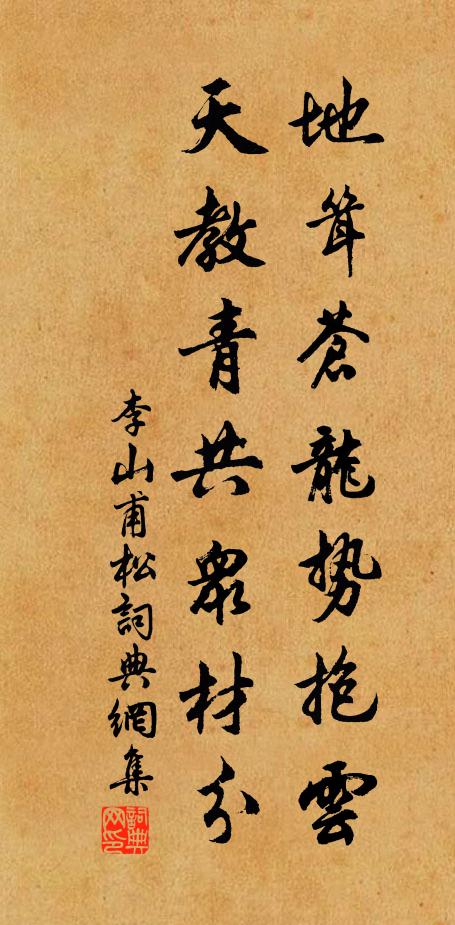 地耸蒼龍势抱雲
天教青共眾材分
李山甫松詞典網集
詞典网印